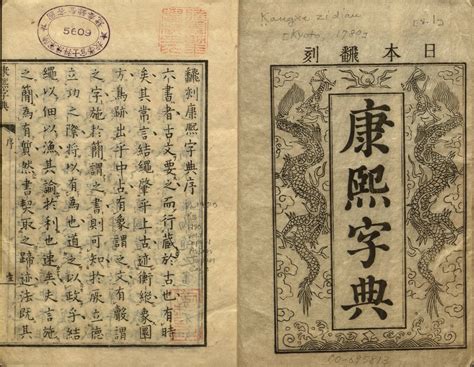 日本翻刻
康熙字典
Kangxi zidian
(Kyoto, 1780)
5609
飜刻康熙字典序
六書者古文要之而行藏於古也有時
矣其常言結繩肇乎上古迹衡縱象圓
方鳥跡出乎中古有象謂之文有謂
之字施於簡謂之書則可知於厥立德
立功之際將以有為也道之以政乎結
繩以佃以漁其諭於利也速矣史言施
之簡為有然書契取之歸迹法既其
康熙字典
序